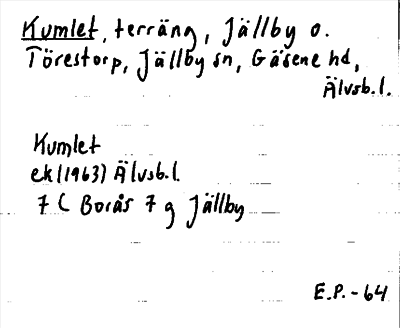 Kumlet, terräng, Jällby o.
Törestorp, Jällby sn, Gäsene hd,
Älvsb.l.
Kumlet
ek (1963) Älvsb.l.
7 C Borås 7 g Jällby
E.P.-64